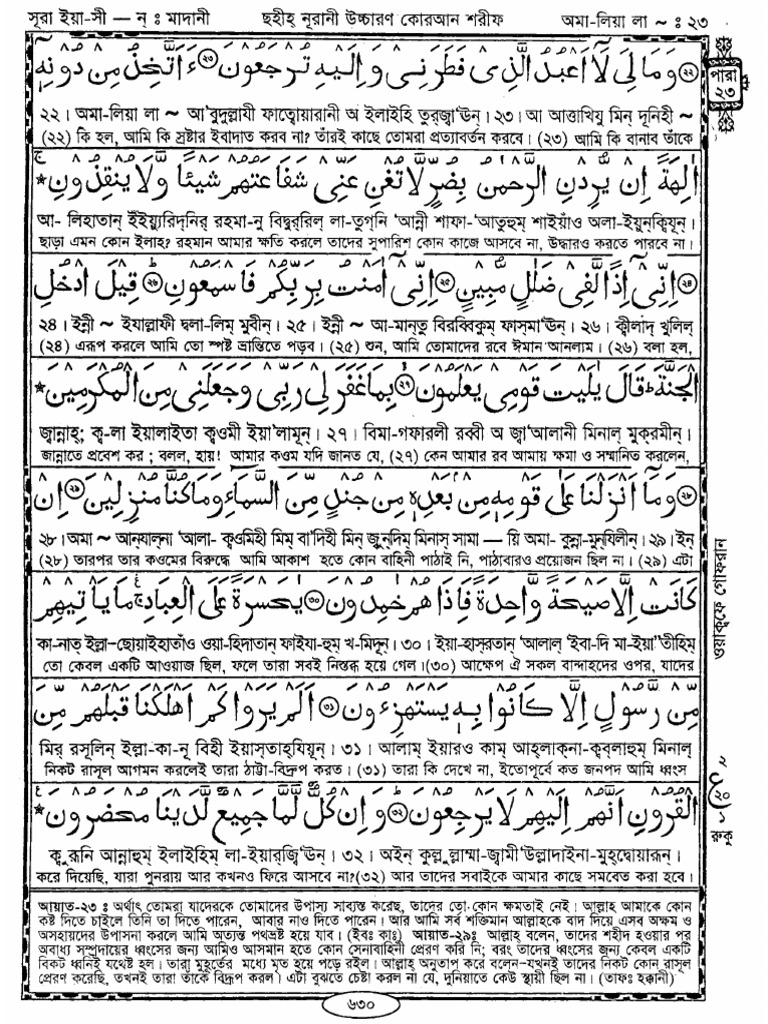 সূরা ইয়া-সী — ন্ ঃ মাদানী ছহীহ্ নূরানী উচ্চারণ কোরআন শরীফ অমা-লিয়া লা ~ ঃ ২৩
পারা ২৩
وَمَا لِيَ لَآ اَعْبُدُ الَّذِىْ فَطَرَنِىْ وَاِلَيْهِ تُرْجَعُوْنَ ۝ ءَاَتَّخِذُ مِنْ دُوْنِهٖٓ
২২। অমা-লিয়া লা ~ আ'বুদুল্লাযী ফাত্বোয়ারানী অ ইলাইহি তুর্‌জ্বা'ঊন্। ২৩। আ আত্তাখিযু মিন্ দূনিহী ~
(২২) কি হল, আমি কি স্রষ্টার ইবাদাত করব না? তাঁরই কাছে তোমরা প্রত্যাবর্তন করবে। (২৩) আমি কি বানাব তাঁকে
اٰلِهَةً اِنْ يُّرِدْنِ الرَّحْمٰنُ بِضُرٍّ لَّا تُغْنِ عَنِّىْ شَفَاعَتُهُمْ شَيْـًٔا وَّلَا يُنْقِذُوْنِ ۚ*
আ- লিহাতান্ ইঁইয়্যুরিদ্‌নির্ রহমা-নু বিদুর্‌রিল্ লা-তুগ্‌নি 'আন্নী শাফা-'আতুহুম্ শাইয়াঁও অলা-ইয়ুন্‌ক্বিযূন্।
ছাড়া এমন কোন ইলাহ? রহমান আমার ক্ষতি করলে তাদের সুপারিশ কোন কাজে আসবে না, উদ্ধারও করতে পারবে না।
۝ اِنِّىْٓ اِذًا لَّفِىْ ضَلٰلٍ مُّبِيْنٍ ۝ اِنِّىْٓ اٰمَنْتُ بِرَبِّكُمْ فَاسْمَعُوْنِ ۝ قِيْلَ ادْخُلِ
২৪। ইন্নী ~ ইযাল্লাফী দ্বলা-লিম্ মুবীন্। ২৫। ইন্নী ~ আ-মান্‌তু বিরব্বিকুম্ ফাস্‌মা'ঊন্। ২৬। ক্বীলাদ্ খুলিল্
(২৪) এরূপ করলে আমি তো স্পষ্ট ভ্রান্তিতে পড়ব। (২৫) শুন, আমি তোমাদের রবে ঈমান আনলাম। (২৬) বলা হল,
الْجَنَّةَ ؕ قَالَ يٰلَيْتَ قَوْمِىْ يَعْلَمُوْنَ ۝ بِمَا غَفَرَ لِىْ رَبِّىْ وَجَعَلَنِىْ مِنَ الْمُكْرَمِيْنَ *
জ্বান্নাহ্; ক্ব-লা ইয়ালাইতা ক্বওমী ইয়া'লামূন্। ২৭। বিমা-গফারলী রব্বী অ জ্বা'আলানী মিনাল্ মুক্‌রমীন্।
জান্নাতে প্রবেশ কর; বলল, হায়! আমার কওম যদি জানত যে, (২৭) কেন আমার রব আমায় ক্ষমা ও সম্মানিত করলেন,
۝ وَمَآ اَنْزَلْنَا عَلٰى قَوْمِهٖ مِنْۢ بَعْدِهٖ مِنْ جُنْدٍ مِّنَ السَّمَآءِ وَمَا كُنَّا مُنْزِلِيْنَ ۝ اِنْ
২৮। অমা ~ আন্‌যাল্‌না 'আলা- ক্বওমিহী মিম্ বা'দিহী মিন্ জুন্দিম্ মিনাস্ সামা — য়ি অমা- কুন্না-মুন্‌যিলীন্। ২৯। ইন্
(২৮) তারপর তার কওমের বিরুদ্ধে আমি আকাশ হতে কোন বাহিনী পাঠাই নি, পাঠাবারও প্রয়োজন ছিল না। (২৯) এটা
كَانَتْ اِلَّا صَيْحَةً وَّاحِدَةً فَاِذَا هُمْ خٰمِدُوْنَ ۝ يٰحَسْرَةً عَلَى الْعِبَادِ ۚ مَا يَاْتِيْهِمْ
কা-নাত্ ইল্লা-ছোয়াইহাতাঁও ওয়া-হিদাতান্ ফাইযা-হুম্ খ-মিদূন্। ৩০। ইয়া-হাস্‌রতান্ 'আলাল্ 'ইবা-দি মা-ইয়া''তীহিম্
তো কেবল একটি আওয়াজ ছিল, ফলে তারা সবই নিস্তব্ধ হয়ে গেল।(৩০) আক্ষেপ ঐ সকল বান্দাহদের ওপর, যাদের
مِّنْ رَّسُوْلٍ اِلَّا كَانُوْا بِهٖ يَسْتَهْزِءُوْنَ ۝ اَلَمْ يَرَوْا كَمْ اَهْلَكْنَا قَبْلَهُمْ مِّنَ
মির্ রসূলিন্ ইল্লা-কা-নূ বিহী ইয়াস্‌তাহ্‌যিয়ূন্। ৩১। আলাম্ ইয়ারও কাম্ আহ্‌লাক্‌না-ক্বব্‌লাহুম্ মিনাল্
নিকট রাসূল আগমন করলেই তারা ঠাট্টা-বিদ্রুপ করত। (৩১) তারা কি দেখে না, ইতোপূর্বে কত জনপদ আমি ধ্বংস
الْقُرُوْنِ اَنَّهُمْ اِلَيْهِمْ لَا يَرْجِعُوْنَ ۝ وَاِنْ كُلٌّ لَّمَّا جَمِيْعٌ لَّدَيْنَا مُحْضَرُوْنَ *
ক্বুরূনি আন্নাহুম্ ইলাইহিম্ লা-ইয়ার্‌জ্বি'ঊন্। ৩২। অইন্ কুল্লুল্লাম্মা-জ্বামী'উল্লাদাইনা-মুহ্‌দ্বোয়ারূন্।
করে দিয়েছি, যারা পুনরায় আর কখনও ফিরে আসবে না?(৩২) আর তাদের সবাইকে আমার কাছে সমবেত করা হবে।
ওয়াক্বফে গোফরান
২
ع
২০
১
রুকু
আয়াত-২৩ ঃ অর্থাৎ তোমরা যাদেরকে তোমাদের উপাস্য সাব্যস্ত করেছ, তাদের তো কোন ক্ষমতাই নেই। আল্লাহ আমাকে কোন
কষ্ট দিতে চাইলে তিনি তা দিতে পারেন, আবার নাও দিতে পারেন। আর আমি সর্ব শক্তিমান আল্লাহকে বাদ দিয়ে এসব অক্ষম ও
অসহায়দের উপাসনা করলে আমি অত্যন্ত পথভ্রষ্ট হয়ে যাব। (ইবঃ কাঃ) আয়াত-২৯ঃ আল্লাহ বলেন, তাদের শহীদ হওয়ার পর
অবাধ্য সম্প্রদায়ের ধ্বংসের জন্য আমিও আসমান হতে কোন সেনাবাহিনী প্রেরণ করি নি; বরং তাদের ধ্বংসের জন্য কেবল একটি
বিকট ধ্বনিই যথেষ্ট হল। তারা মুহূর্তের মধ্যে মৃত হয়ে পড়ে রইল। আল্লাহ অনুতাপ করে বলেন–যখনই তাদের নিকট কোন রাসূল
প্রেরণ করেছি, তখনই তারা তাঁকে বিদ্রূপ করল। এটা বুঝতে চেষ্টা করল না যে, দুনিয়াতে কেউ স্থায়ী ছিল না। (তাফঃ হক্কানী)
৬৩০